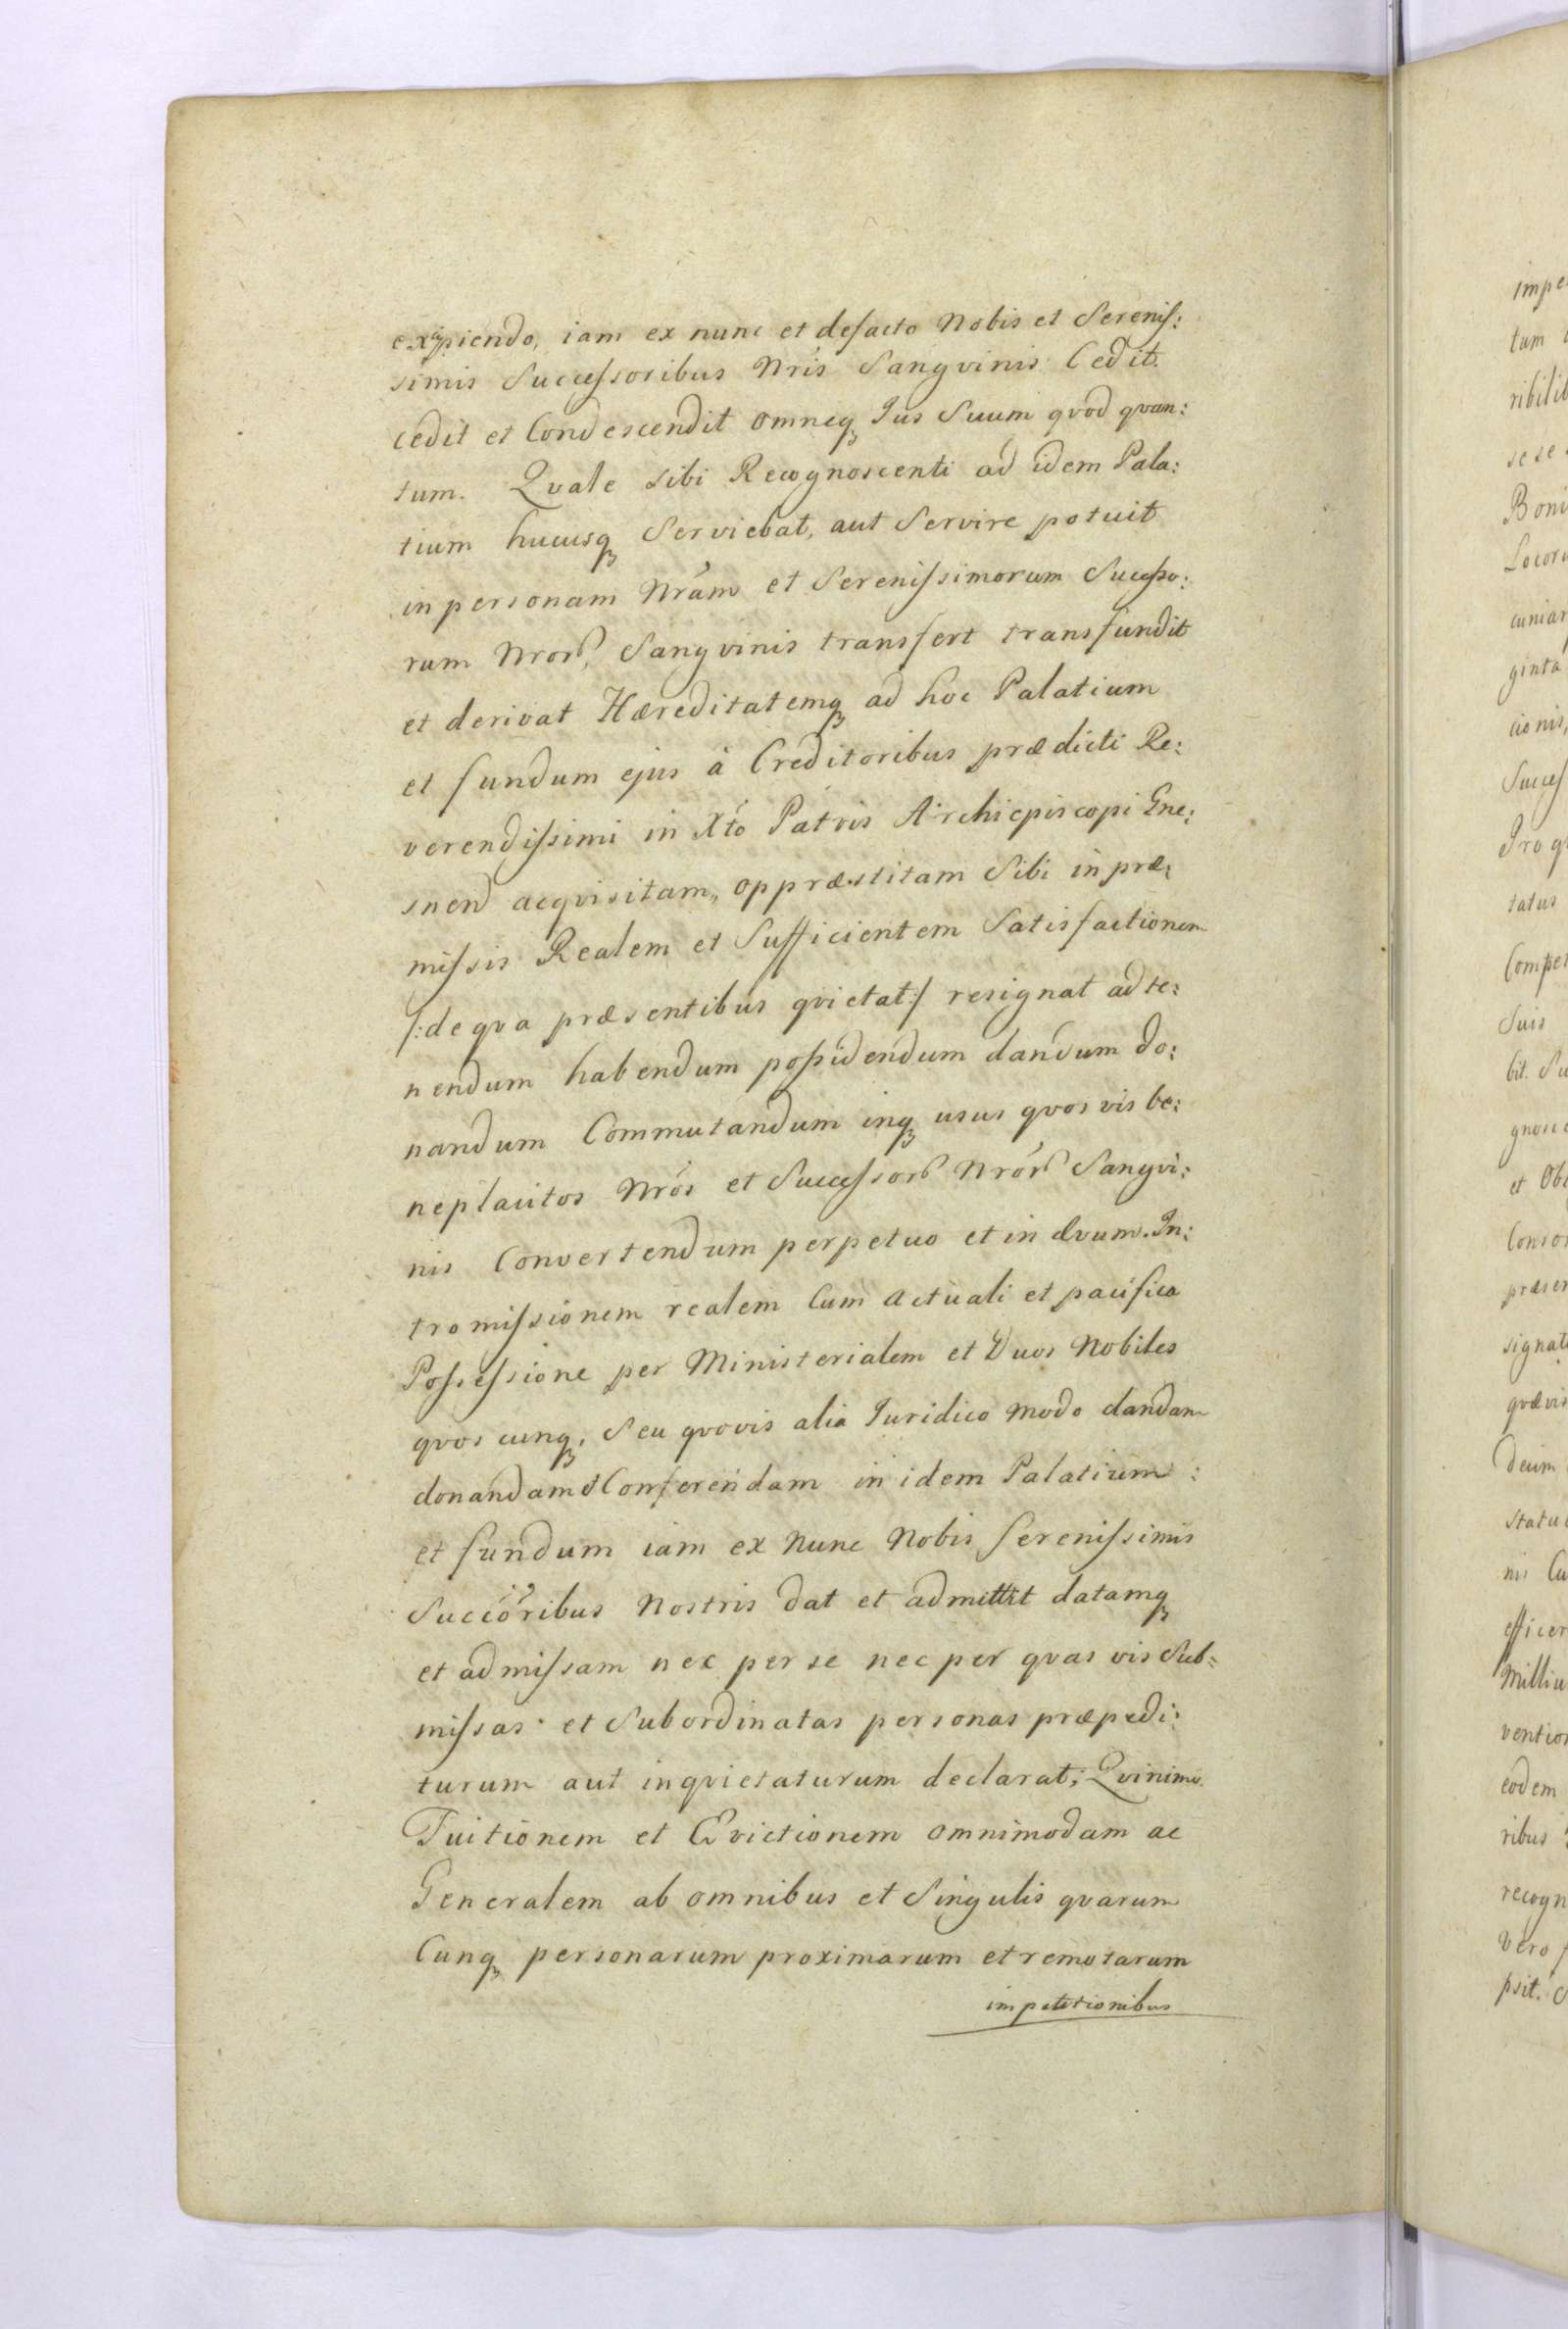 expiendo, iam ex nunc et defacto Nobis et Serenis:
simis Successoribus Nris Sangvinis Cedit.
cedit et Condescendit omneq Ius Suum qvod qvan:
tum. Qvale sibi Recognoscenti ad idem Pala:
tium hucusq Serviebat, aut Servire potuit
in personam Nrám et Serenissimorum Successo:
rum Nror, Sangvinis transfert transfundit
et derivat Hæreditatemq ad hoc Palatium
et fundum ejus à Creditoribus prædicti Re:
verendissimi in Xto Patris Archiepiscopi Gne:
snen acqvisitam, oppræstitam Sibi in præ:
missis Realem et Sufficientem Satisfactionem
/:de qva præsentibus qvietat:/ resignat ad te:
nendum habendum possidendum dandum do:
nandum Commutandum inq usus qvos vis be:
neplacitos Nrós et Successor Nrór Sangvi:
nis Convertendum perpetuo et in ævum. In:
tromissionem realem Cum actuali et pacifica
Possessione per Ministerialem et Duos Nobiles
qvos cunq, Seu qvovis alio Iuridico modo dandam
donandam et Conferendam in idem Palatium:
et fundum iam ex Nunc Nobis Serenissimis
Succóribus Nostris dat et admittit datamq
et admissam nec per se nec per qvas vis Sub:
missas et Subordinatas personas præpedi:
turum aut inqvietaturum declarat; Qvinimo
Tuitionem et Evictionem omnimodam ac
Generalem ab omnibus et Singulis qvarum
Cunq personarum proximarum et remotarum
impetitionibus
impe
tum
ribilib
sese
Boni
Locor
cuniar
ginta
cionis,
Succes
Pro q
tatus
Compet
Suis
bit. Su
gnosc
et Obl
Conso
præsen
signat
qvævis
deum
statu
nis Cu
efficer
Milliu
vention
eodem
ribus
recogn
Vero
psit.